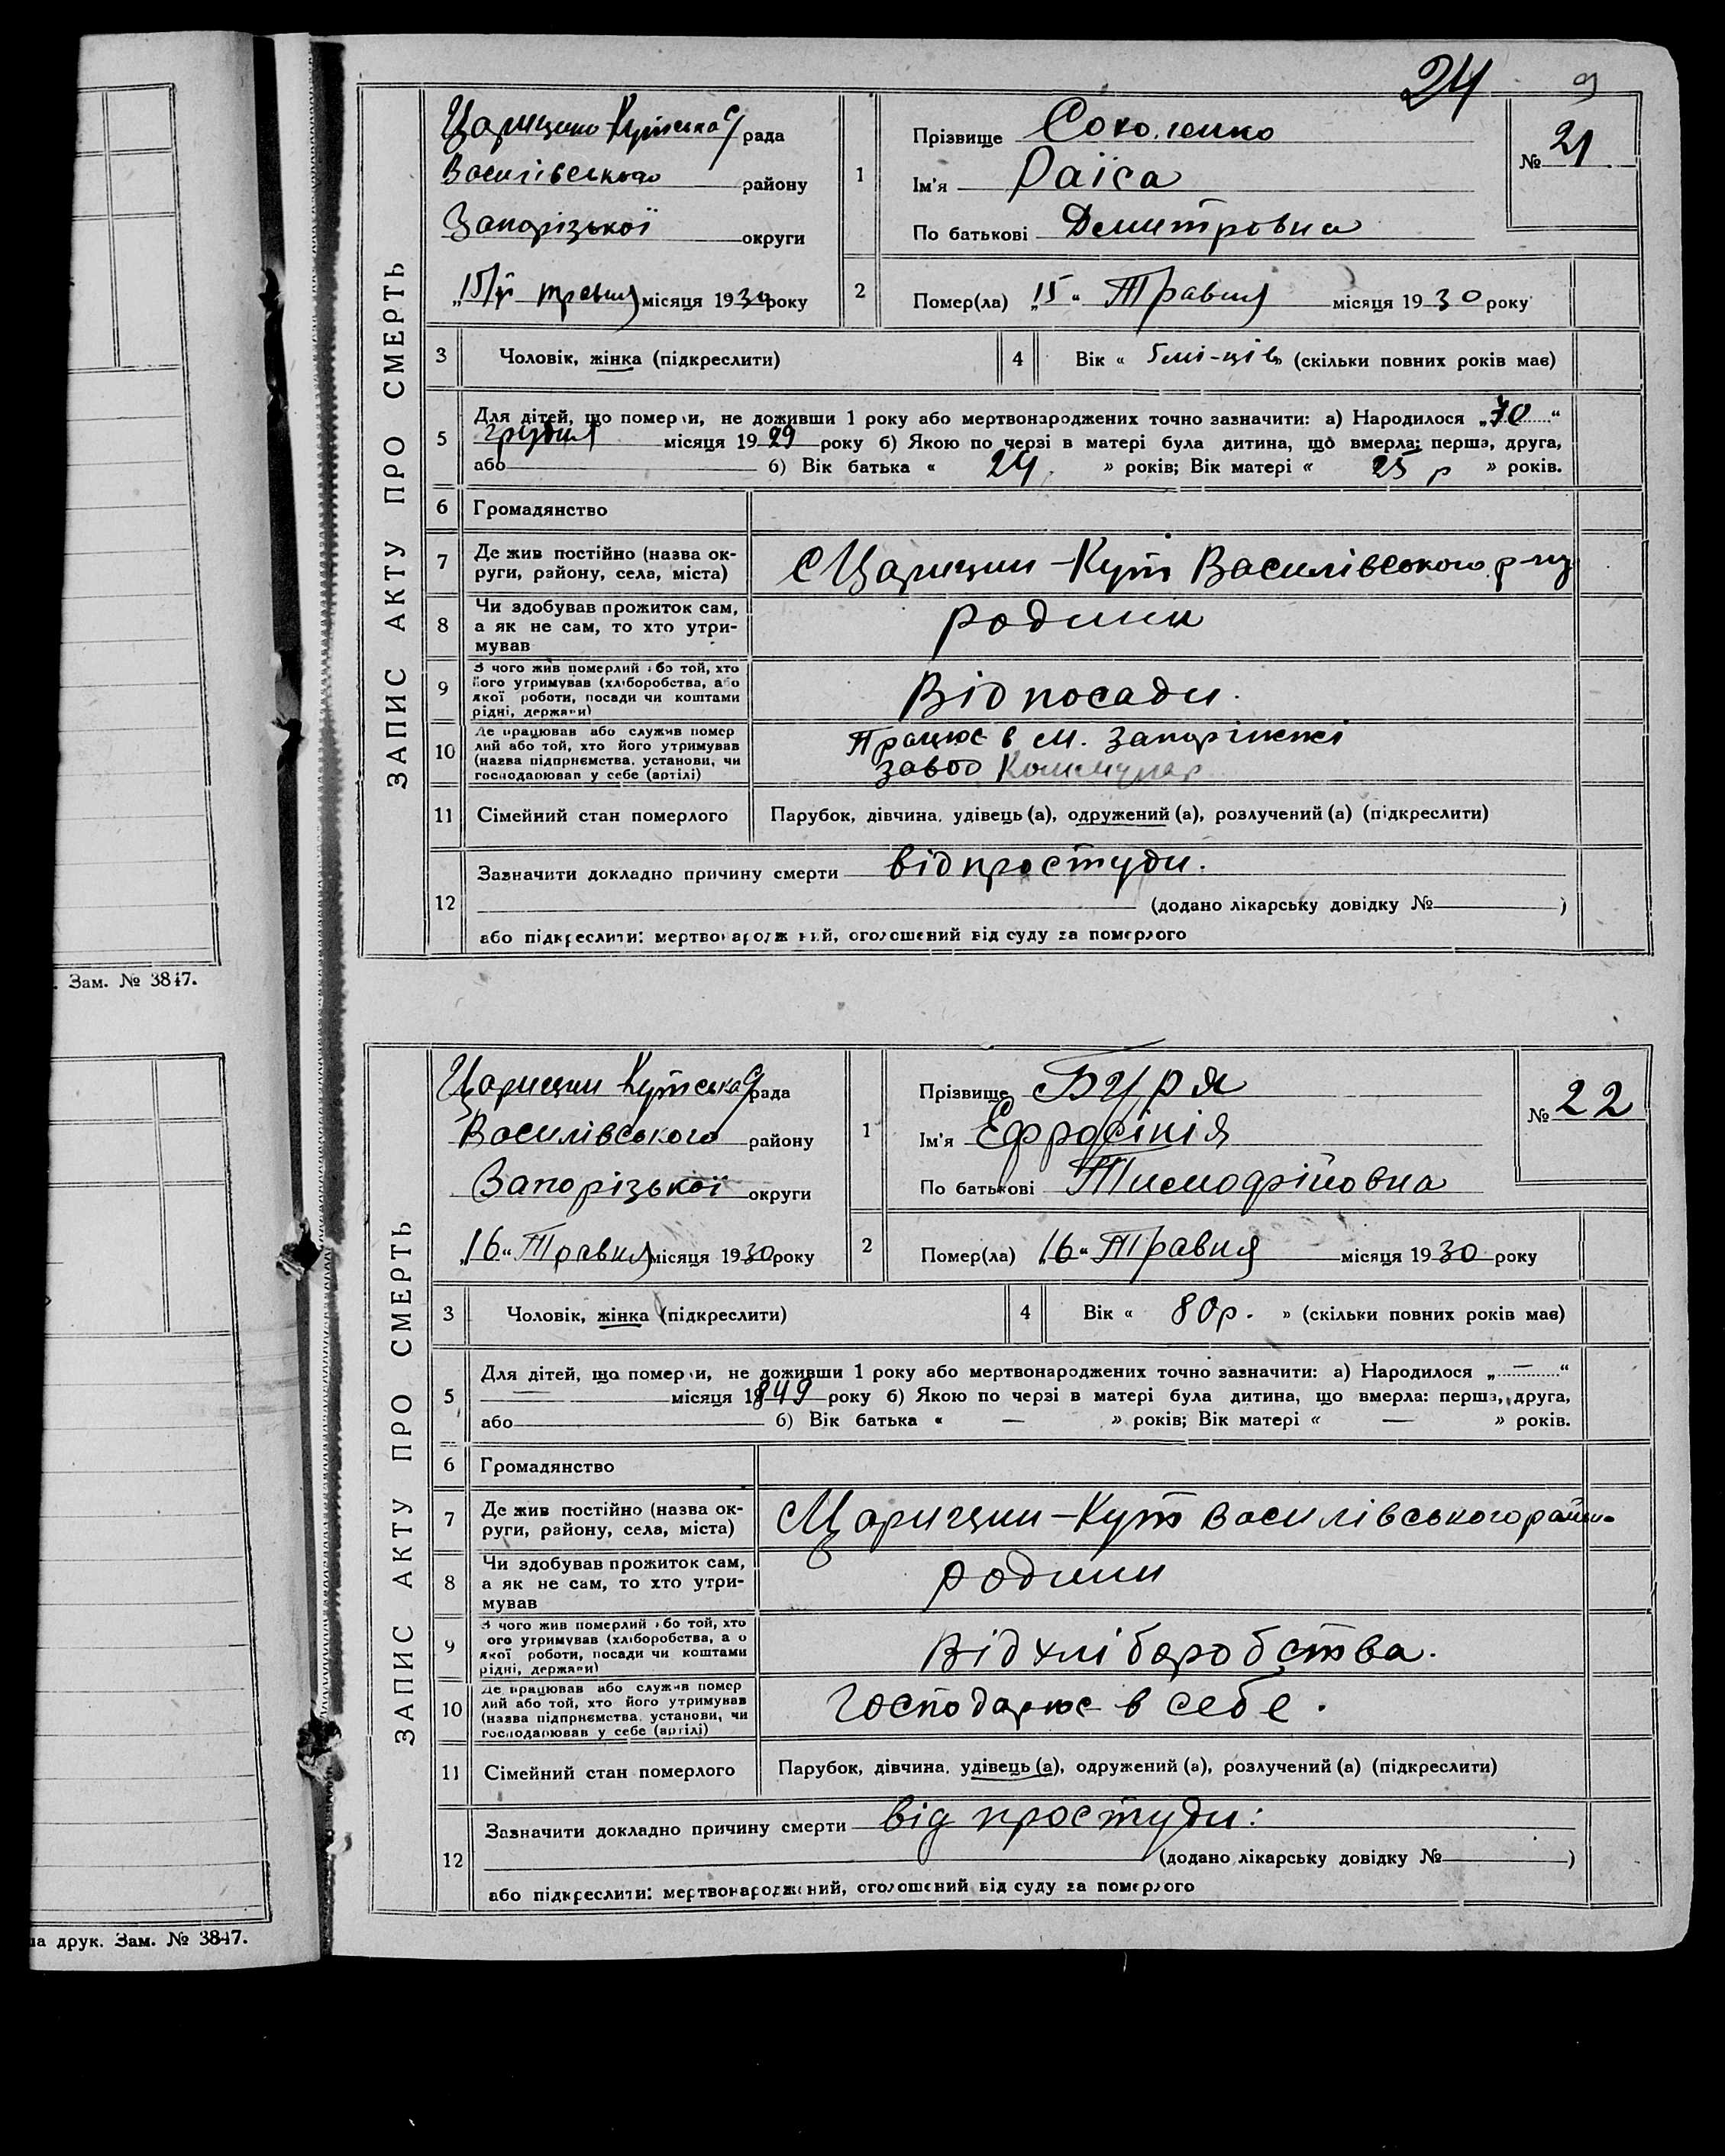 24
Царицино-Кутська с/рада
Василівського району
Запорізької округи
„15/V травня місяця 1930 року
ЗАПИС АКТУ ПРО СМЕРТЬ
1
Прізвище
Ім'я Раїса
По батькові Демитровна
№ 21
2
Помер(ла) „15“ Травня місяця 1930 року
3 Чоловік, жінка (підкреслити)
4 Вік « 5 мі-ців» (скільки повних років має)
5 Для дітей, що померли, не доживши 1 року або мертвонароджених точно зазначити: а) Народилося „ “
грудня місяця 1929 року б) Якою по черзі в матері була дитина, що вмерла: перша, друга,
або б) Вік батька « 24 » років; Вік матері « 25 р » років.
6 Громадянство
7 Де жив постійно (назва ок-
руги, району, села, міста)
с Царицин-Кут Василівського р-ну
8 Чи здобував прожиток сам,
а як не сам, то хто утри-
мував
родини
9 З чого жив померлий або той, хто
його утримував (хліборобства, або
якої роботи, посади чи коштами
рідні, держави)
Від посади.
10 Де працював або служив помер
лий або той, хто його утримував
(назва підприємства, установи, чи
господарював у себе (артілі)
Працює в м. Запоріжжі
завод Коммунар
11 Сімейний стан померлого Парубок, дівчина, удівець (а), одружений (а), розлучений (а) (підкреслити)
12 Зазначити докладно причину смерти від простуди.
(додано лікарську довідку № )
або підкреслити: мертвонароджений, оголошений від суду за померлого
. Зам. № 3847.
Царицин Кутська с/рада
Василівського району
Запорізької округи
„16“ Травня місяця 1930 року
ЗАПИС АКТУ ПРО СМЕРТЬ
1
Прізвище Буря
Ім'я Ефросінія
По батькові
№ 22
2
Помер(ла) „16“ Травня місяця 1930 року
3 Чоловік, жінка (підкреслити)
4 Вік « 80 р. » (скільки повних років має)
5 Для дітей, що померли, не доживши 1 року або мертвонароджених точно зазначити: а) Народилося „ — “
— місяця 1849 року б) Якою по черзі в матері була дитина, що вмерла: перша, друга,
або б) Вік батька « — » років; Вік матері « — » років.
6 Громадянство
7 Де жив постійно (назва ок-
руги, району, села, міста)
Царицин-Кут Василівського
8 Чи здобував прожиток сам,
а як не сам, то хто утри-
мував
родини
9 З чого жив померлий або той, хто
його утримував (хліборобства, або
якої роботи, посади чи коштами
рідні, держави)
Від хліборобства.
10 Де працював або служив помер
лий або той, хто його утримував
(назва підприємства, установи, чи
господарював у себе (артілі)
Господарює в себе.
11 Сімейний стан померлого Парубок, дівчина, удівець (а), одружений (а), розлучений (а) (підкреслити)
12 Зазначити докладно причину смерти від простуди:
(додано лікарську довідку № )
або підкреслити: мертвонароджений, оголошений від суду за померлого
друк. Зам. № 3847.